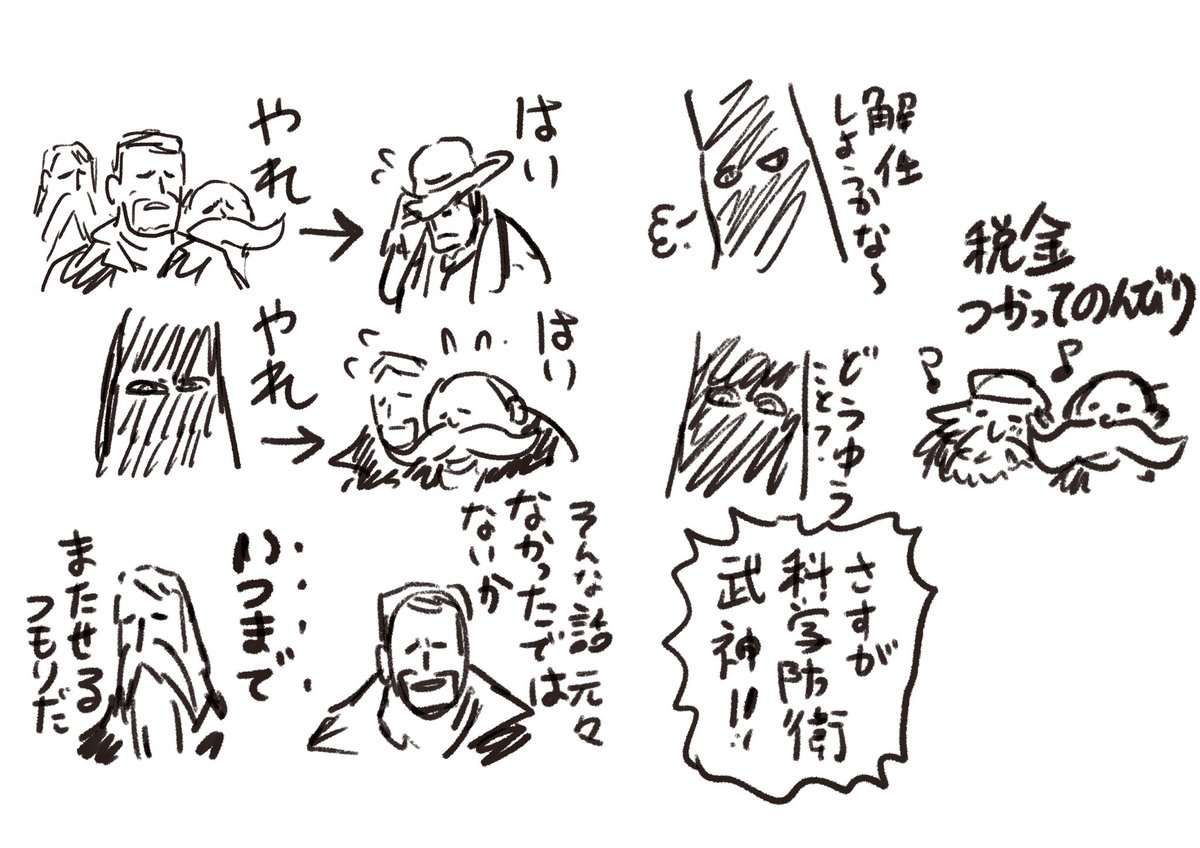 やれ
はい
やれ
はい
いつまで
またせる
つもりだ
そんな話 元々
なかったでは
ないか
解任
しようかな〜
どうゆう
こと?
税金
つかってのんびり
さすが
科学防衛
武神!!